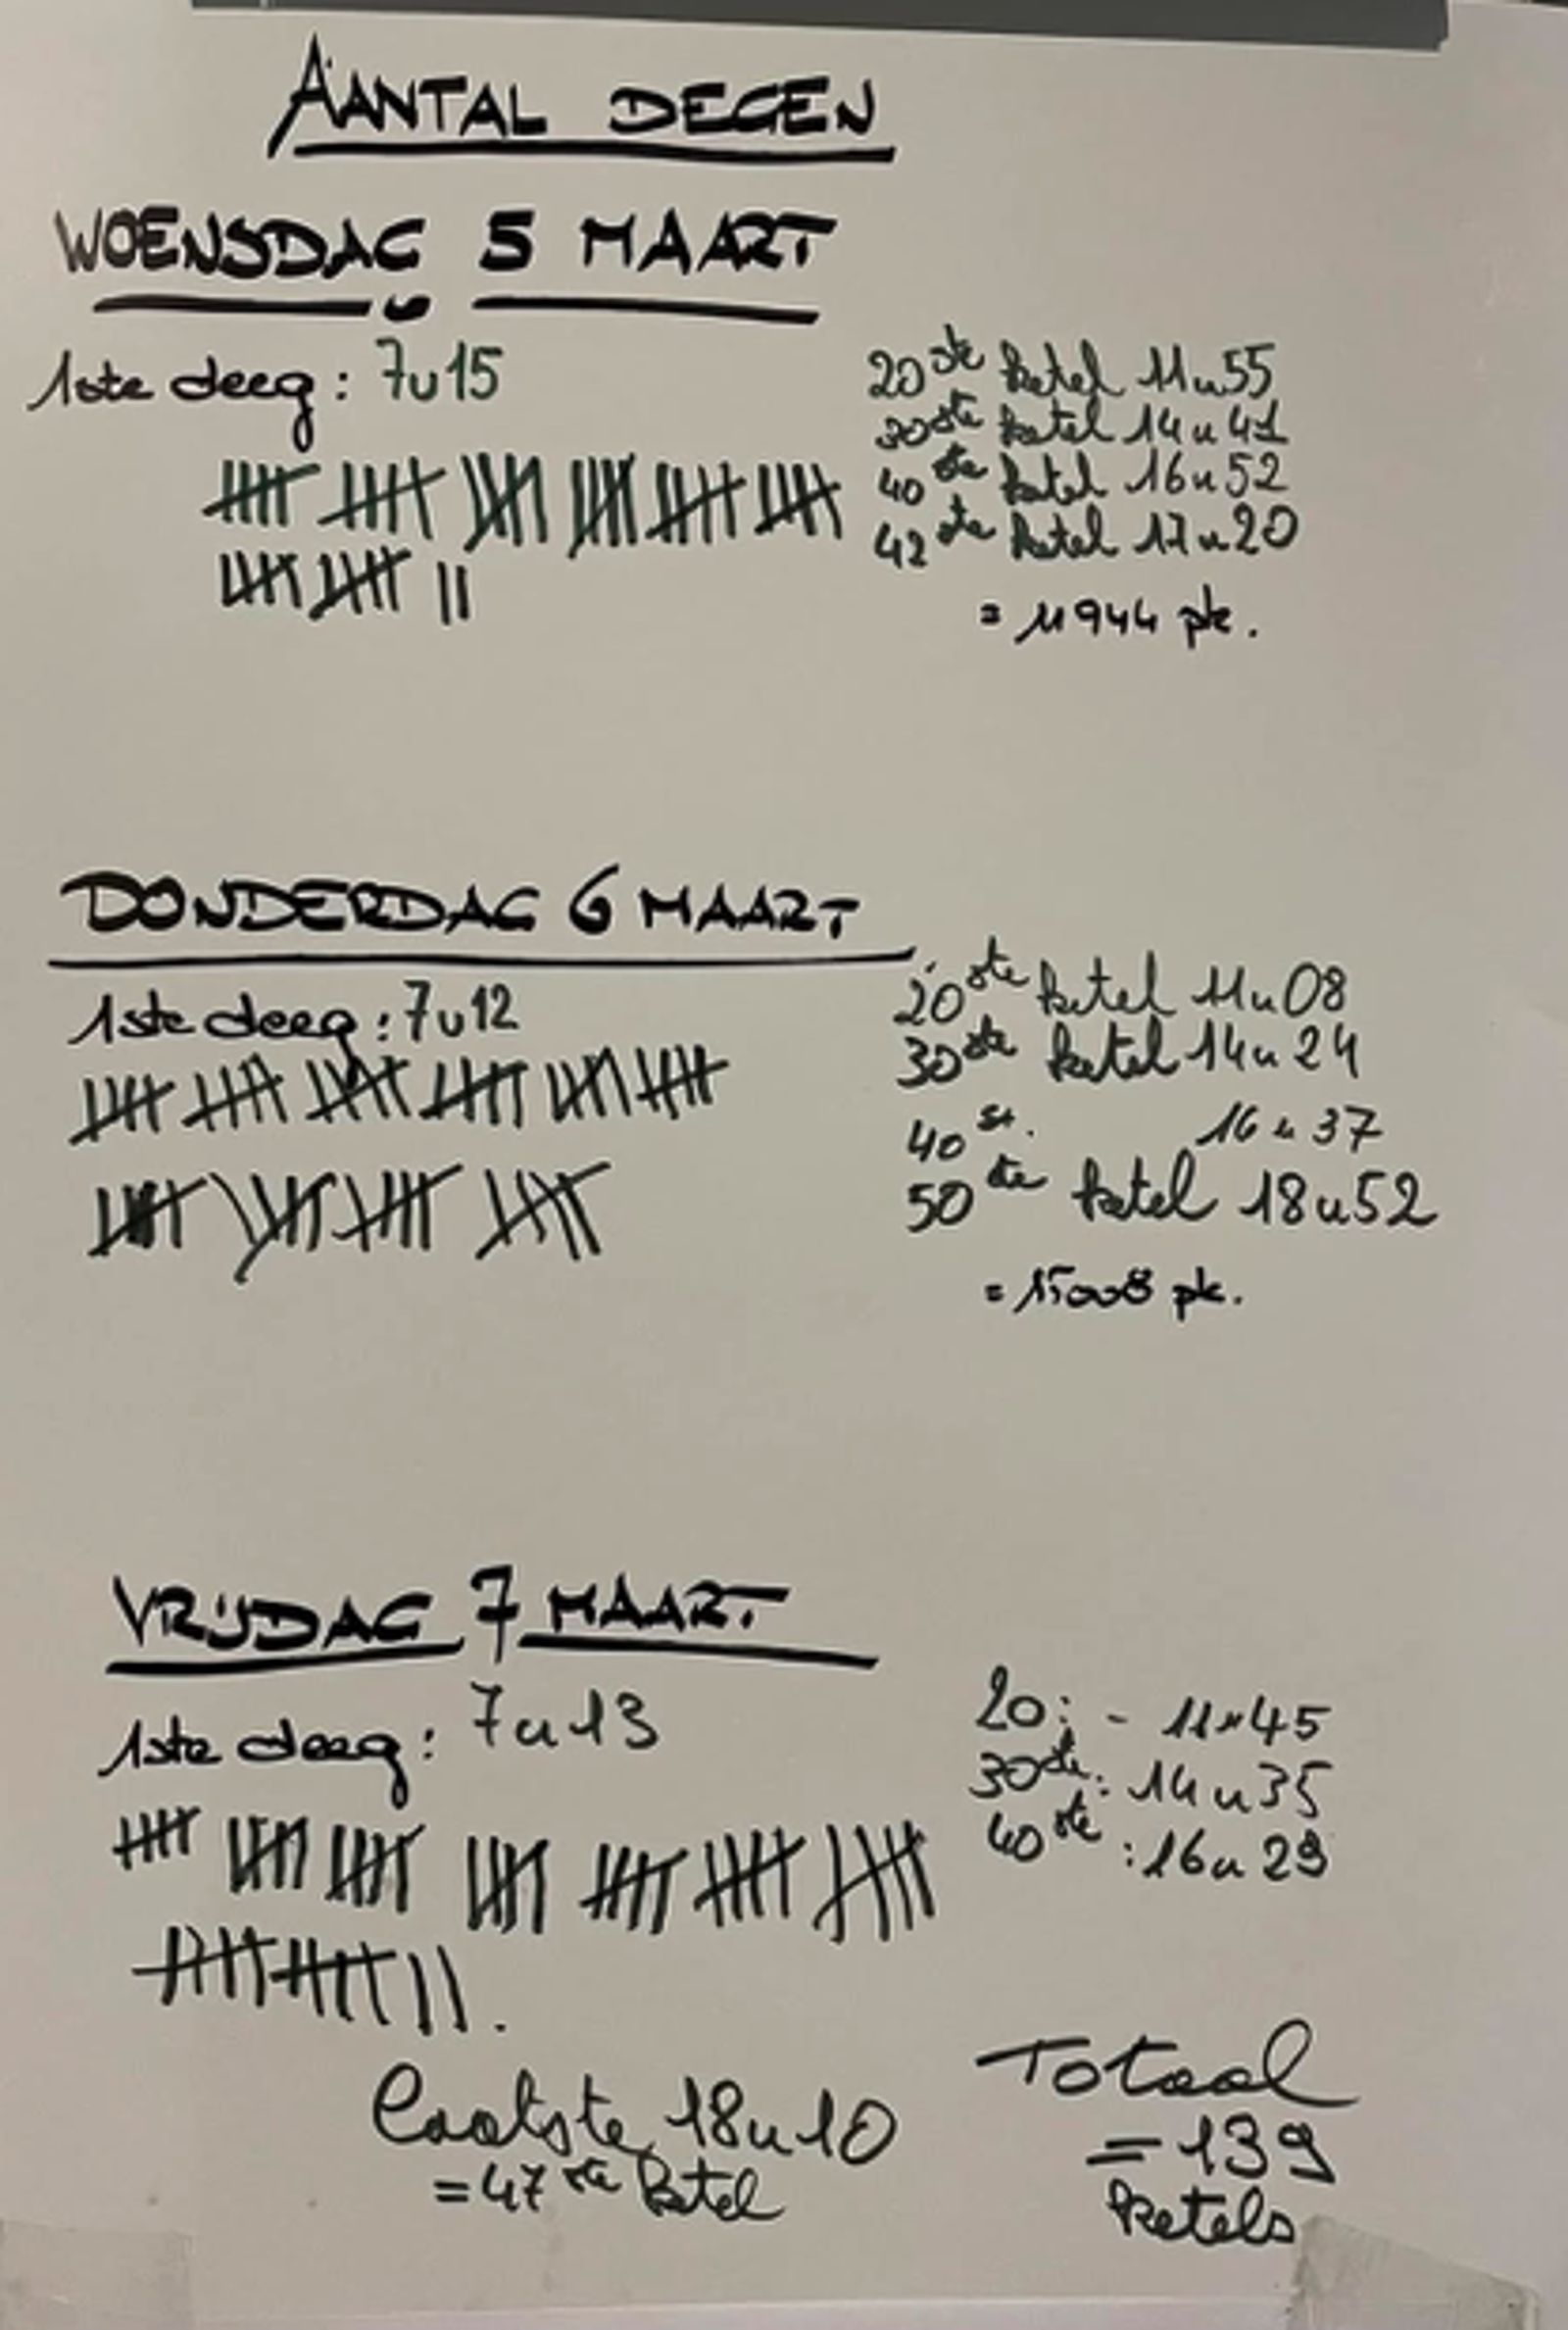 AANTAL DEGEN
WOENSDAG 5 MAART
1ste deeg: 7u15
20ste ketel 11u55
30ste ketel 14u41
40ste ketel 16u52
42ste ketel 17u20
= 11944 pk.
DONDERDAG 6 MAART
1ste deeg: 7u12
20ste ketel 11u08
30ste ketel 14u24
40st. 16u37
50ste ketel 18u52
= 15008 pk.
VRIJDAG 7 MAART
1ste deeg: 7u13
20: - 11u45
30ste: 14u35
40ste: 16u29
Laatste 18u10
= 47ste ketel
Totaal
= 139
ketels